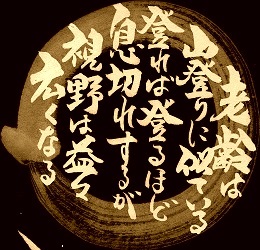 老齢は
山登りに似ている
登れば登るほど
息切れするが
視野は益々
広くなる